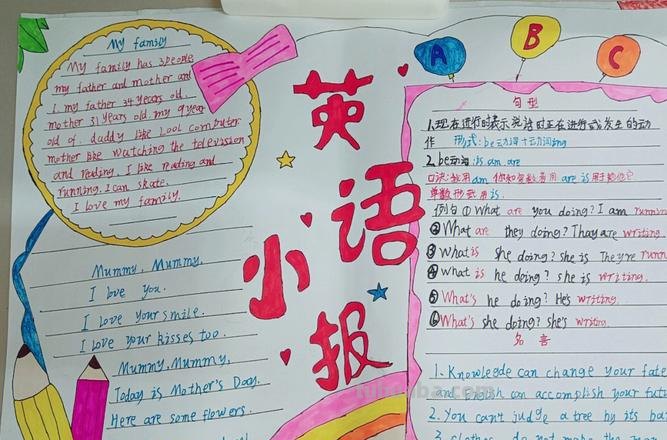 My family
My family has 3people
my father and mother and
I. my father 34 years old.
mother 31 years old. my 9year
old of. daddy like Look computer
mother like watching the television
and reading. I like reading and
running. I can skate.
I love my family.
Mummy, Mummy,
I love you.
I love your smile.
I love your kisses too.
Mummy, Mummy,
Today is Mother's Day.
Here are some flowers.
英
语
小
报
A
B
C
句型
1.现在进行时表示说话时正在进行或发生的动
作 形式:be动词+动词ing
2.be动词:is am are
口诀:我用am 你和复数者用are is用于他她它
单数形式用is
例句①What are you doing? I am runnin
②What are they doing? Thay are writing.
③What is she doing? she is They're runn
④What is he doing? she is writing.
⑤What's he doing? He's writing.
⑥What's she doing? she's writing.
名言
1. Knowlegde can change your fate
and English can accomplish your futu
2. You can't judge a tree by its ba
3. clothes do not make the man